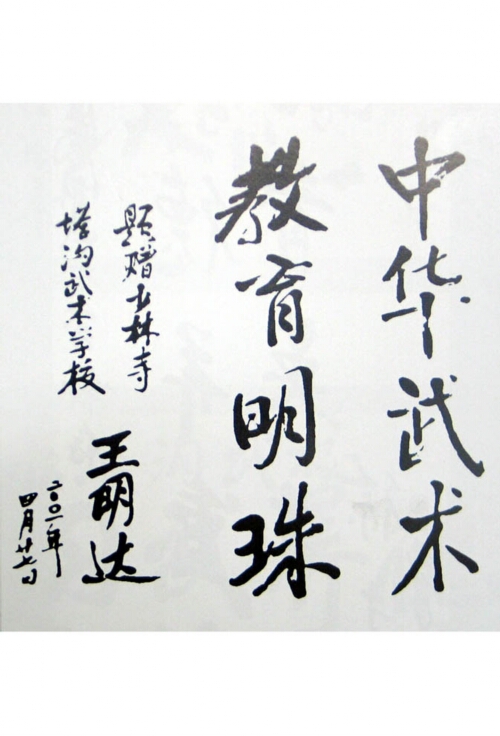 中华武术
教育明珠
题赠少林寺
塔沟武术学校
王明达
二〇〇一年
四月廿七日